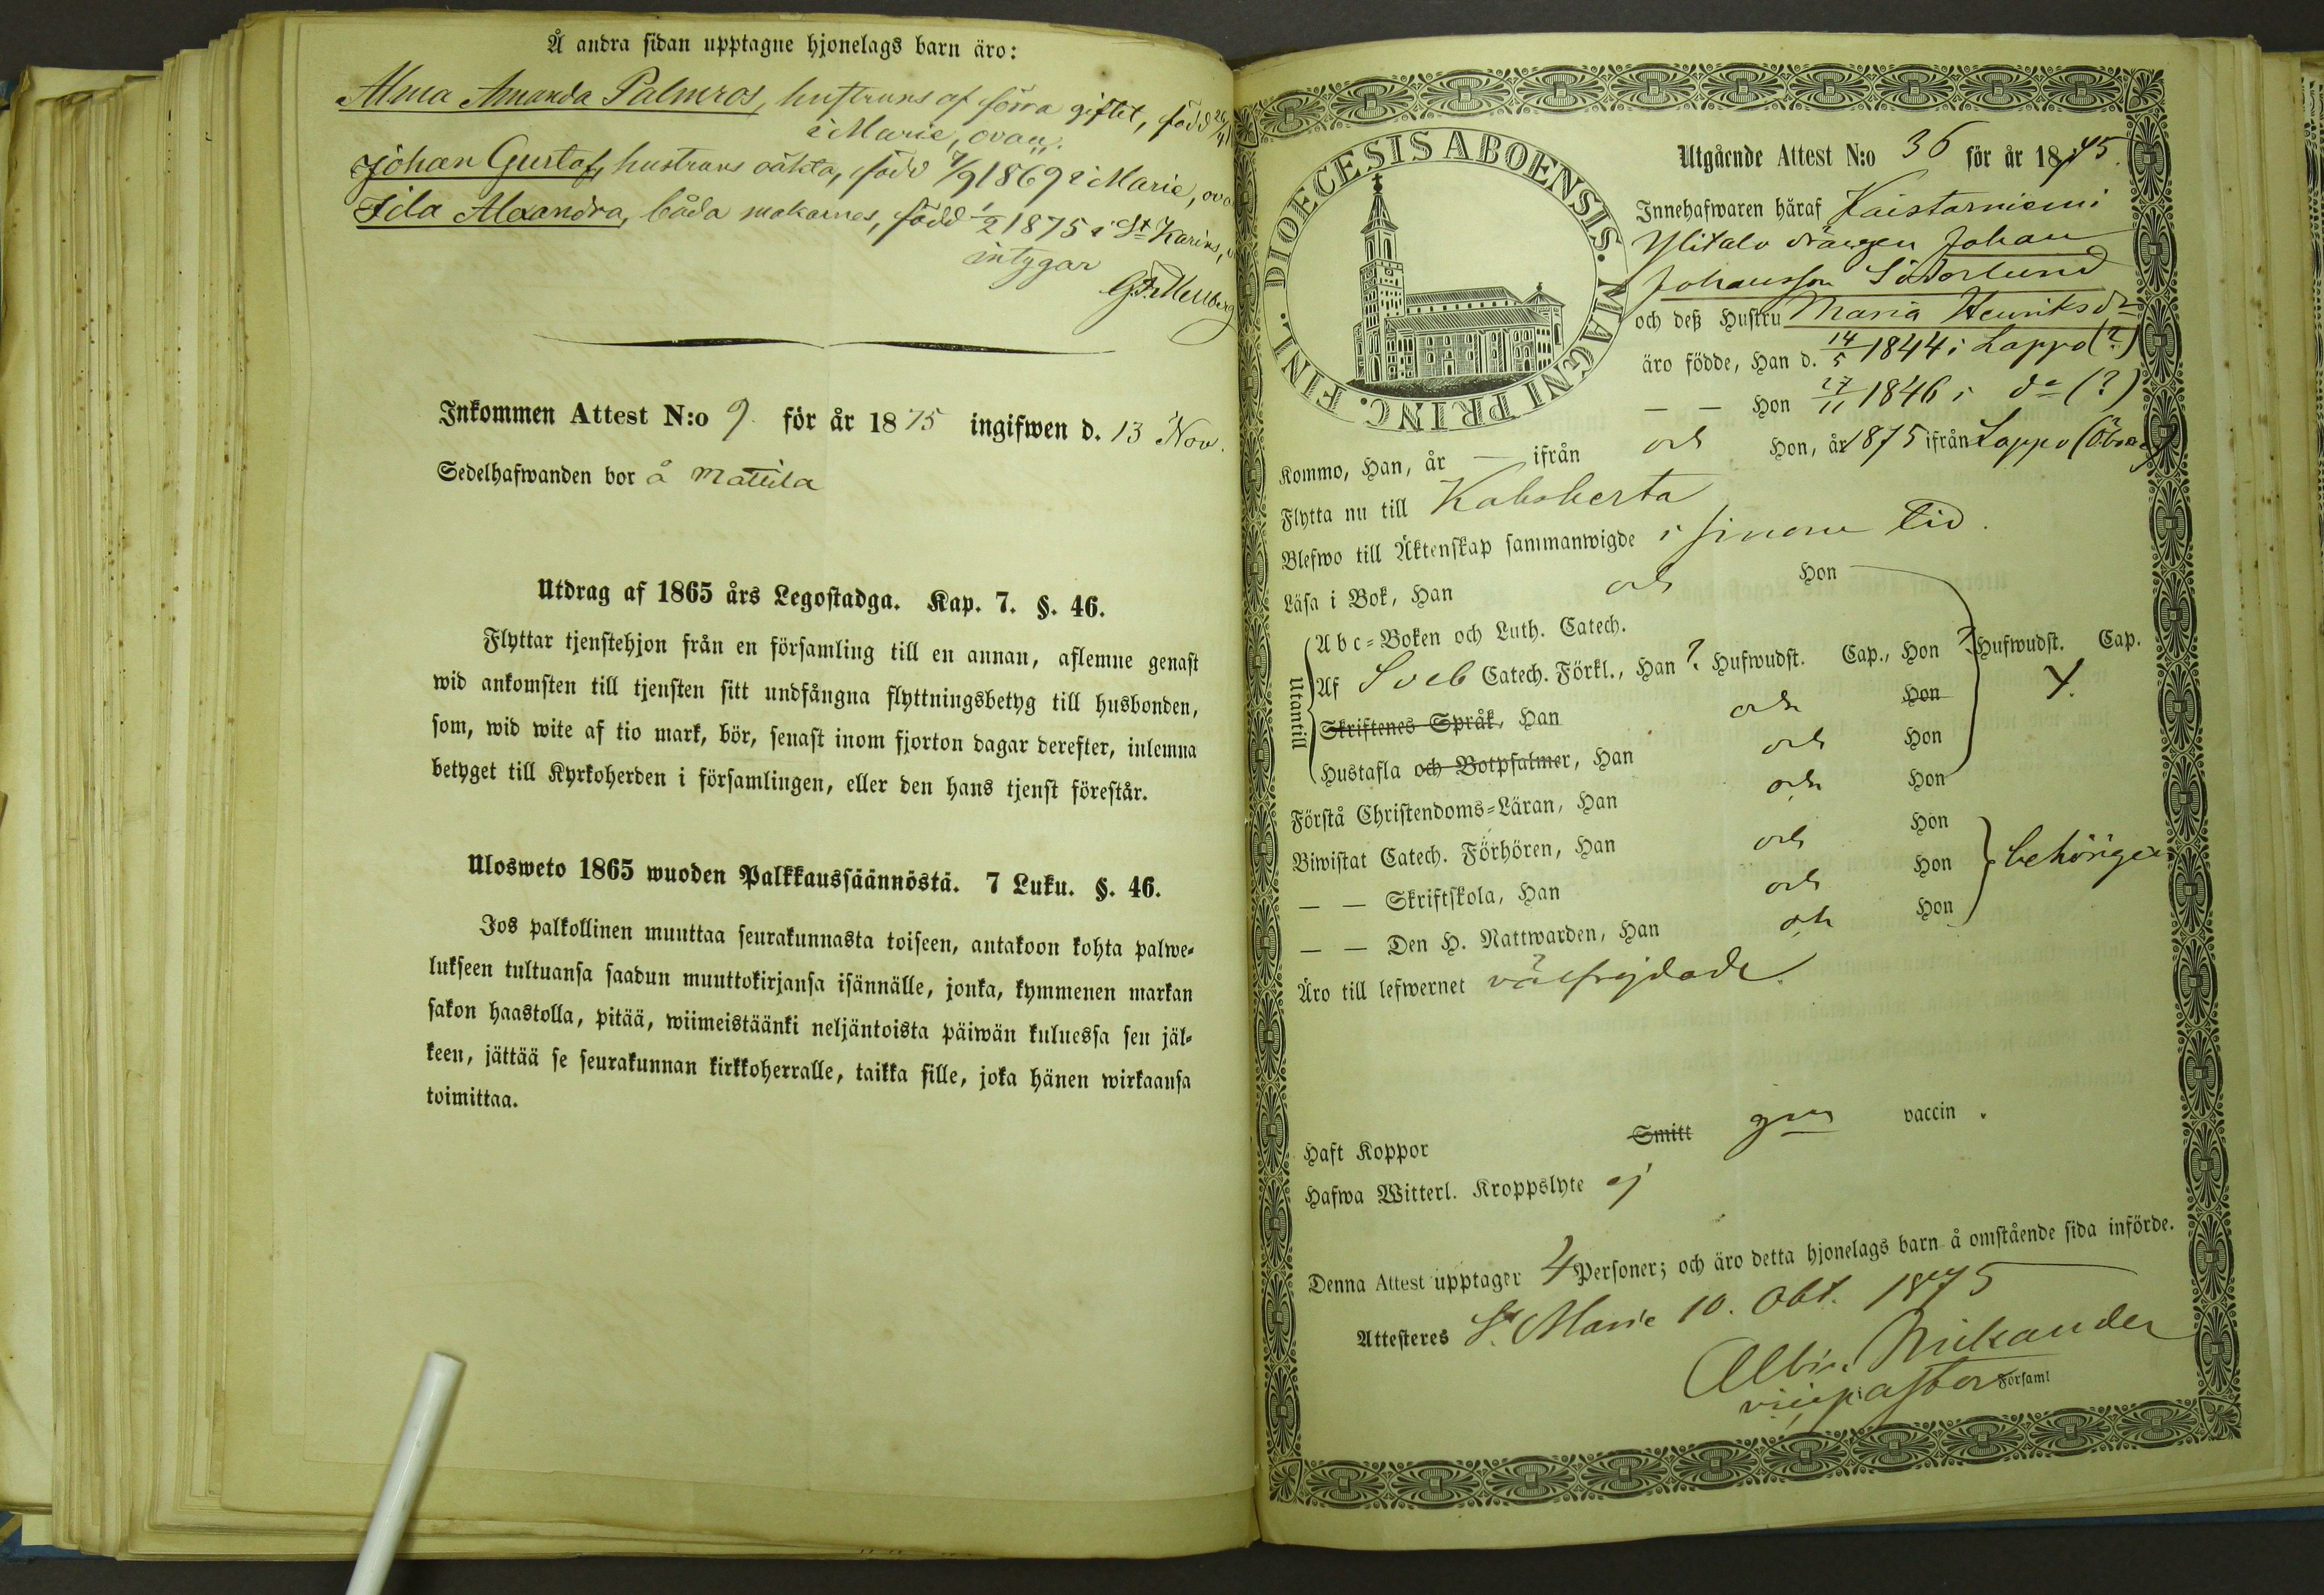 Å andra sidan upptagne hjonelags barn äro:
Alma Amanda Palmros, hustruns af förra giftet, född 26/4
i Marie, ovac.
Johan Gustaf, hustruns oäkta, född 7/9 1869 i Marie, ova
Ida Alexandra, båda makarnes, född 1/2 1875 i St Karins,
intygar
G. F. Mellberg
Inkommen Attest N:o 9 för år 1875 ingifwen d. 13 Nov.
Sedelhafwanden bor å Mattila
Utdrag af 1865 års Legostadga. Kap. 7. §. 46.
Flyttar tjenstehjon från en församling till en annan, aflemne genast
wid ankomsten till tjensten sitt undfångna flyttningsbetyg till husbonden,
som, wid wite af tio mark, bör, senast inom fjorton dagar derefter, inlemna
betyget till Kyrkoherden i församlingen, eller den hans tjenst förestår.
Ulosweto 1865 wuoden Palkkaussäännöstä. 7 Luku. §. 46.
Jos palkollinen muuttaa seurakunnasta toiseen, antakoon kohta palwe-
lukseen tultuansa saadun muuttokirjansa isännälle, jonka, kymmenen markan
sakon haastolla, pitää, wiimeistäänki neljäntoista päiwän kuluessa sen jäl-
keen, jättää se seurakunnan kirkkoherralle, taikka sille, joka hänen wirkaansa
toimittaa.
DIOECESIS ABOENSIS. MAGNI PRINC. FINL.
Utgående Attest N:o 36 för år 1875.
Innehafwaren häraf Kaistarniemi
Ylitalo drängen Johan
Johansson Söderlund
och deß Hustru Maria Henriksdr
äro födde, Han d. 14/5 1844 i Lappo (?)
— — Hon 27/11 1846 i do (?)
Kommo, Han, år — ifrån och Hon, år 1875 ifrån Lappo (Åbo
Flytta nu till Kakskerta
Blefwo till Äktenskap sammanwigde i sinom tid.
Läsa i Bok, Han och Hon
Utantill
Abc-Boken och Luth. Catech.
Af Sveb Catech. Förkl., Han ? Hufwudst. Cap., Hon ? Hufwudst. Cap.
Skriftenes Språk, Han och Hon
Hustafla och Botpsalmer, Han och Hon
Förstå Christendoms-Läran, Han och Hon
Biwistat Catech. Förhören, Han och Hon
— — Skriftskola, Han och Hon behörigen
— — Den H. Nattwarden, Han och Hon
Äro till lefwernet välfrejdade
Haft Koppor Smitt gm vaccin.
Hafwa Witterl. Kroppslyte ej
Denna Attest upptager 4 Personer; och äro detta hjonelags barn å omstående sida införde.
Attesteres St Marie 10. Okt. 1875
Albin Mikander
vicepastor Församl